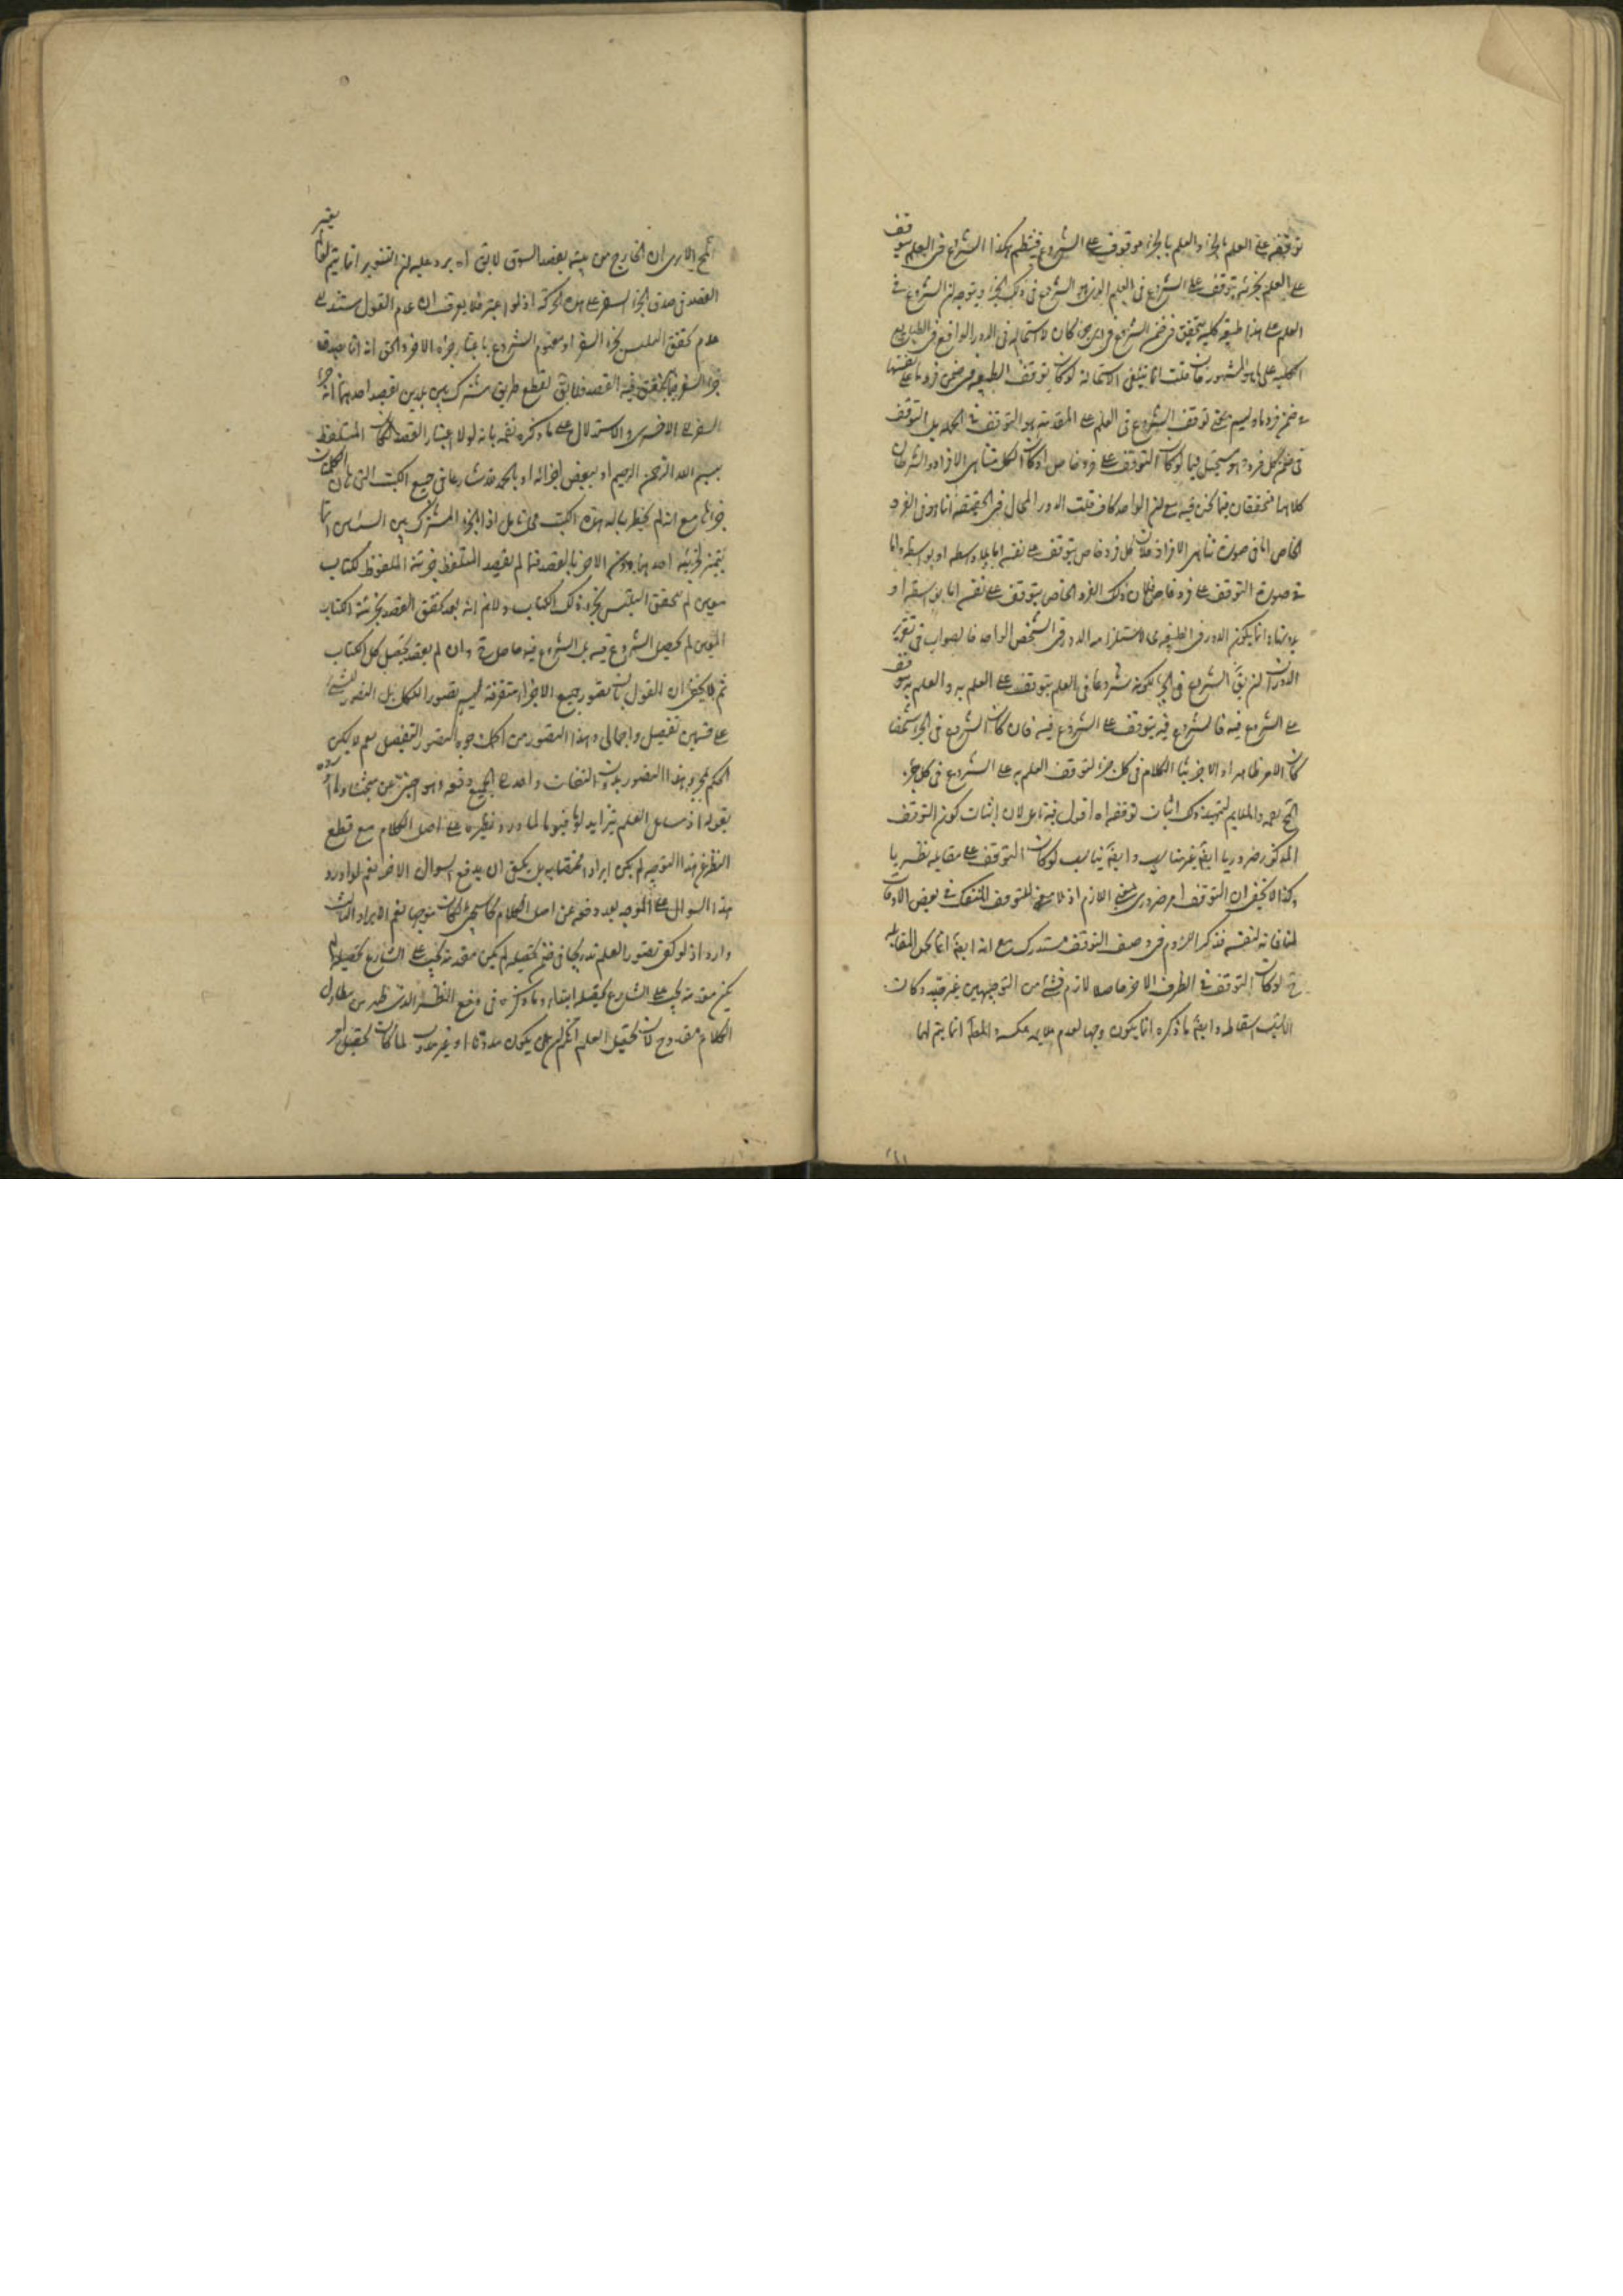 توقفه على العلم بالجزء والعلم بالجزء موقوف على الشروع فينتظم هكذا الشروع في العلم يتوقف
على العلم بجزئه يتوقف على الشروع في العلم الذي هو الشروع في ذلك الجزء ويتوجه ان الشروع في
العلم على هذا طبيعة كلية يتحقق في ضمن الشروع في اي جزء كان لا استحالة في الدور الواقع في الطبايع
الكلية على ما هو المشهور فان قلت انما ينتفى الاستحالة لو كان توقف الطبيعة في ضمن فرد ما على نفسها
في ضمن فرد ما وليس معنى توقف الشروع في العلم على المقدمة هو التوقف في الجملة بل التوقف
في ضمن كل فرد وهو مستحيل فيما لو كان التوقف على فرد خاص او كان الكل متناهي الافراد والشرطان
كلاهما متحققان فيما نحن فيه مع ان الواحد كاف قلت الدور المحال في الحقيقة انما هو في الفرد
الخاص اما في صورة تناهي الافراد فلان كل فرد خاص يتوقف على نفسه اما بلا واسطة او بواسطة واما
في صورة التوقف على فرد خاص فلان ذلك الفرد الخاص يتوقف على نفسه اما بواسطة او
بدونها وانما يكون الدور في الطبيعة لاستلزامه الدور في الشخص الواحد فالصواب في تقرير
الدور ان يق الشروع في الجزء لكونه شروعا في العلم يتوقف على العلم به والعلم به يتوقف
على الشروع فيه فالشروع فيه يتوقف على الشروع فيه فان كان الشروع في الجزء
كان الامر ظاهرا والا جرينا الكلام في كل جزء لتوقف العلم به على الشروع في كل جزء
اثبات توقفه اه اقول فيه تأمل لان اثبات كون التوقف
المذكور ضروريا ايضا غير مناسب وايضا يناسب لو كان التوقف على مقابله نظريا
وكذا لا يخفى ان التوقف امر ضروري بمعنى اللازم اذ لا معنى للتوقف المنفك في بعض الاوقات
لمنافاته لنفسه فذكر اللزوم في وصف التوقف مستدرك مع انه ايضا انما يحل المقابلة
لو كان التوقف في الطرف الاخر حاصلا لازم فشئ من التوجيهين غير وكان
اسقاطه وايضا ما ذكره انما يكون وجها لعدم عكسه انما يتم لما
الا يرى ان الخارج من بيته بقصد السوق لا يق اه يرد عليه ان التنوير انما يتم لو لم يعتبر
القصد في صدق الجزء السفر على هذه الحركة اذ لو اعتبر فلا يعرف ان عدم القول مستند الى
عدم تحقق التلبس بجزء السفر او معنى الشروع باعتبار جزاه الاخر والحق انه انما يصدق
جزء السفر فيما يتحقق فيه القصد فلا يق لقطع طريق مشترك بين بلدين بقصد احدهما انه جزء
السفر الى الاخرى والاستدلال على ما ذكره نفيه بانه لولا اعتبار القصد لكان المتلفظ
بسم الله الرحمن الرحيم او ببعض اجزائه او بالحمد شارعا في جميع الكتب التي كان
جزاءها مع انه لم يخطر بباله هذه الكتب محل تامل اذ الجزء المشترك بين الشيئين انما
يتميز لجزئية احدهما دون الاخر بالقصد فما لم يقصد المتلفظ جزئية الملفوظ لكتاب
معين لم يتحقق التلبس بجزء ذلك الكتاب ولا نم انه بعد تحقق القصد بجزئية الكتاب
المعين لم يحصل الشروع فيه بل الشروع فيه حاصل وان لم يقصد تحصيل كل الكتاب
ثم لا يخفى ان القول بان تصور جميع الاجزاء متفرقة ليس تصور الكل بل التصور للشيء
على قسمين تفصيلي واجمالي وهذا التصور من اكمل وجوه التصور التفصيلي نعم لا يمكن
الحكم بهذا التصور بدون التفات واحد الى الجميع دفعة وهو اجنبي عن مبحثنا
بقوله اذ مسائل العلم يتزايد يوما فيوما لما ورد ونظيره على اصل الكلام مع قطع
النظر عن هذا التوجيه لم يكن ايراد مختصا به بل يمكن ان يدفع السوال الاخر نعم لو اورد
هذا السوال على التوجيه بعد دفعه عن اصل الكلام كما سيجيء لكان متوجها نعم الايراد الثالث
وارد اذ لو كفى تصور العلم تدريجا في ضمن تحصيله لم يكن مقدمة يجب على الشارع تحصيلها
يمكن مقدمة يجب على الشارع تحصيله ابتداء وما ذكره في دفع النظر الذي ظهر من مطاوي
الكلام مقدوح لان تحصيل العلم يكون مدونا او غير مدون لما كان تحصيل